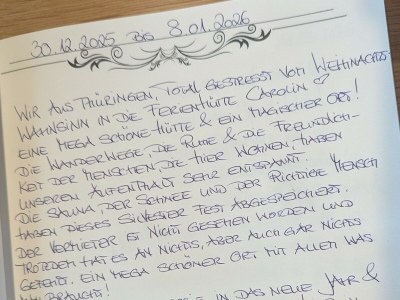 30.12.2025 BIS 8.01.2026
WIR AUS THÜRINGEN, TOTAL GESTRESST VOM WEIHNACHTS-
WAHNSINN IN DIE FERIENHÜTTE CAROLIN ♡
EINE MEGA SCHÖNE HÜTTE & EIN MAGISCHER ORT!
DIE WANDERWEGE, DIE RUHE & DIE FREUNDLICH-
KEIT DER MENSCHEN, DIE HIER WOHNEN, HABEN
UNSEREN AUFENTHALT SEHR ENTSPANNT.
DIE SAUNA, DER SCHNEE UND DER RICHTIGE MENSCH
HABEN DIESES SILVESTER FEST ABGESPEICHERT.
DER VERMIETER IST NICHT GESEHEN WORDEN UND
TROTZDEM HAT ES AN NICHTS, ABER AUCH GAR NICHTS
GEFEHLT. EIN MEGA SCHÖNER ORT MIT ALLEM WAS
BRAUCHT!
IN DAS NEUE JAHR &